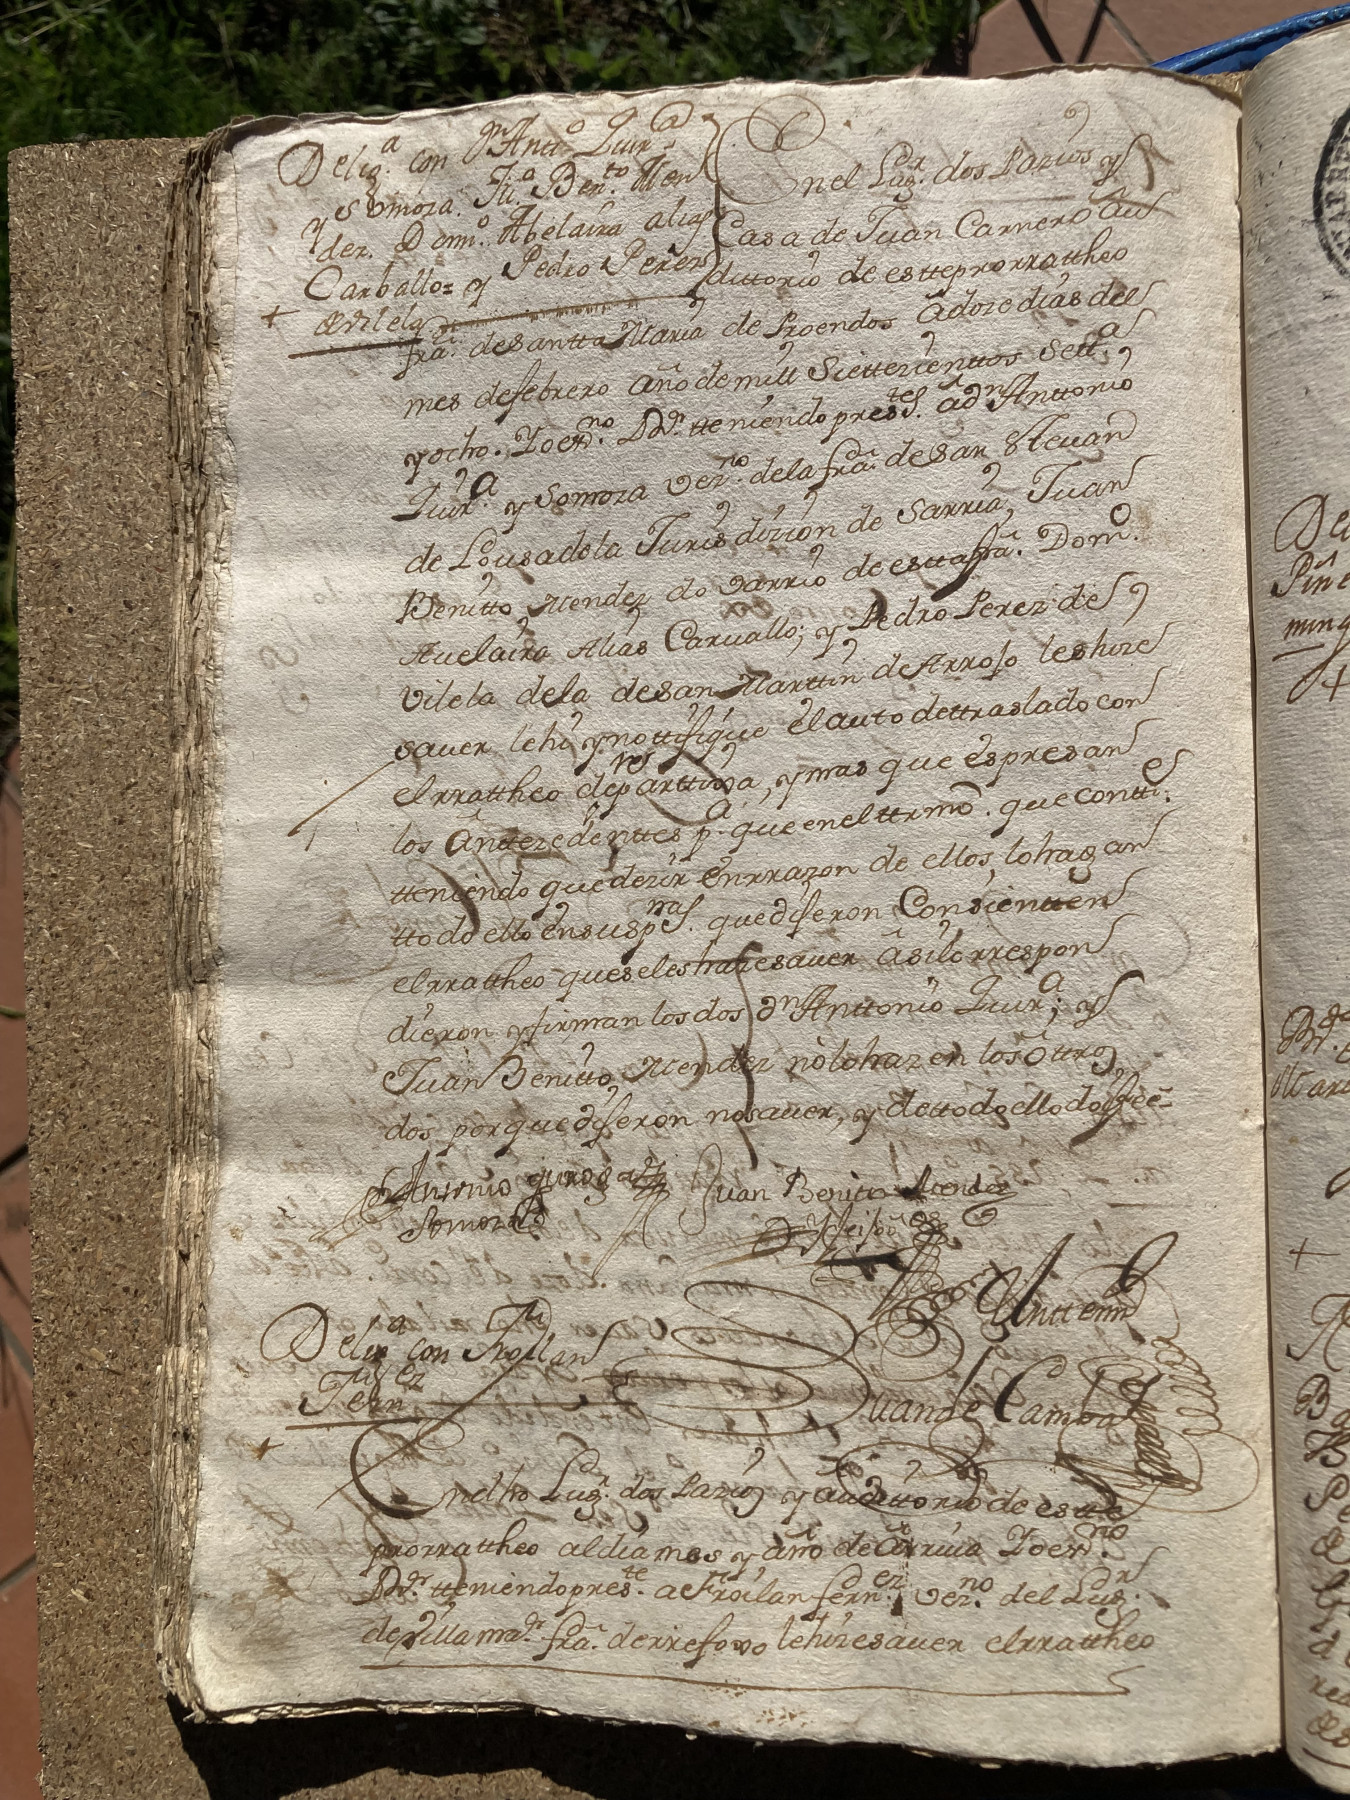 Delig.ª con Dn Antt.º Quir.ª
y Somoza. Ju.º Ben.to Men
dez. Dom.º Abelaira alias
Carballo= y Pedro Perez
de Vilela
En el Lug.r dos Pazios y
Casa de Juan Carnero au
dittorio de estte prorrattheo
fra. de Santta Maria de Proendos â doze dias del
mes de febrero año de mill Siettezienttos Sett.ª
y ocho. Yo esn.no Rr. tteniendo pres.tes â dn Anttonio
Quir.ª y Somoza vez.no de la fra. de San Stevan
de Lousadela Jurisdizion de Sarria, Juan
Benitto Mendez do Varrio de estta fra. Dom.º
Avelaira Alias Carvallo; y Pedro Perez de
Vilela de la de San Marttin de Arrojo les hize
saver lehi y nottifique el auto de ttraslado con
el rrattheo de parttixa, y mas que espresan
los ânttezedenttes p.ª que en el ttermo. que contti.e
tteniendo que dezir en rrazon de ellos, lo hagan
ttodo ello en sus p.nas que dijeron Consientten
el rrattheo que se les haze saver âsi lo rrespon
dieron y firman los dos dn Anttonio Quir.ª; y
Juan Benitto Mendez no lo hazen los ôttros
dos por que dijeron no saver, y de ttodo ello doy fee=
Antonio quiroga y
Somoza
Juan Benito Mendez
Antte mi
Juan de Camba
Delig.ª con Froilan
Fern.ez
En dho Lug.r dos Pazios y audittorio de estte
prorrattheo al dia mes y año de ârriva Yo esn.no
Rr. tteniendo pres.te a Froilan Fern.ez vez.no del Lug.r
de Villamr. fra. de rrefoxo le hize saver el rrattheo